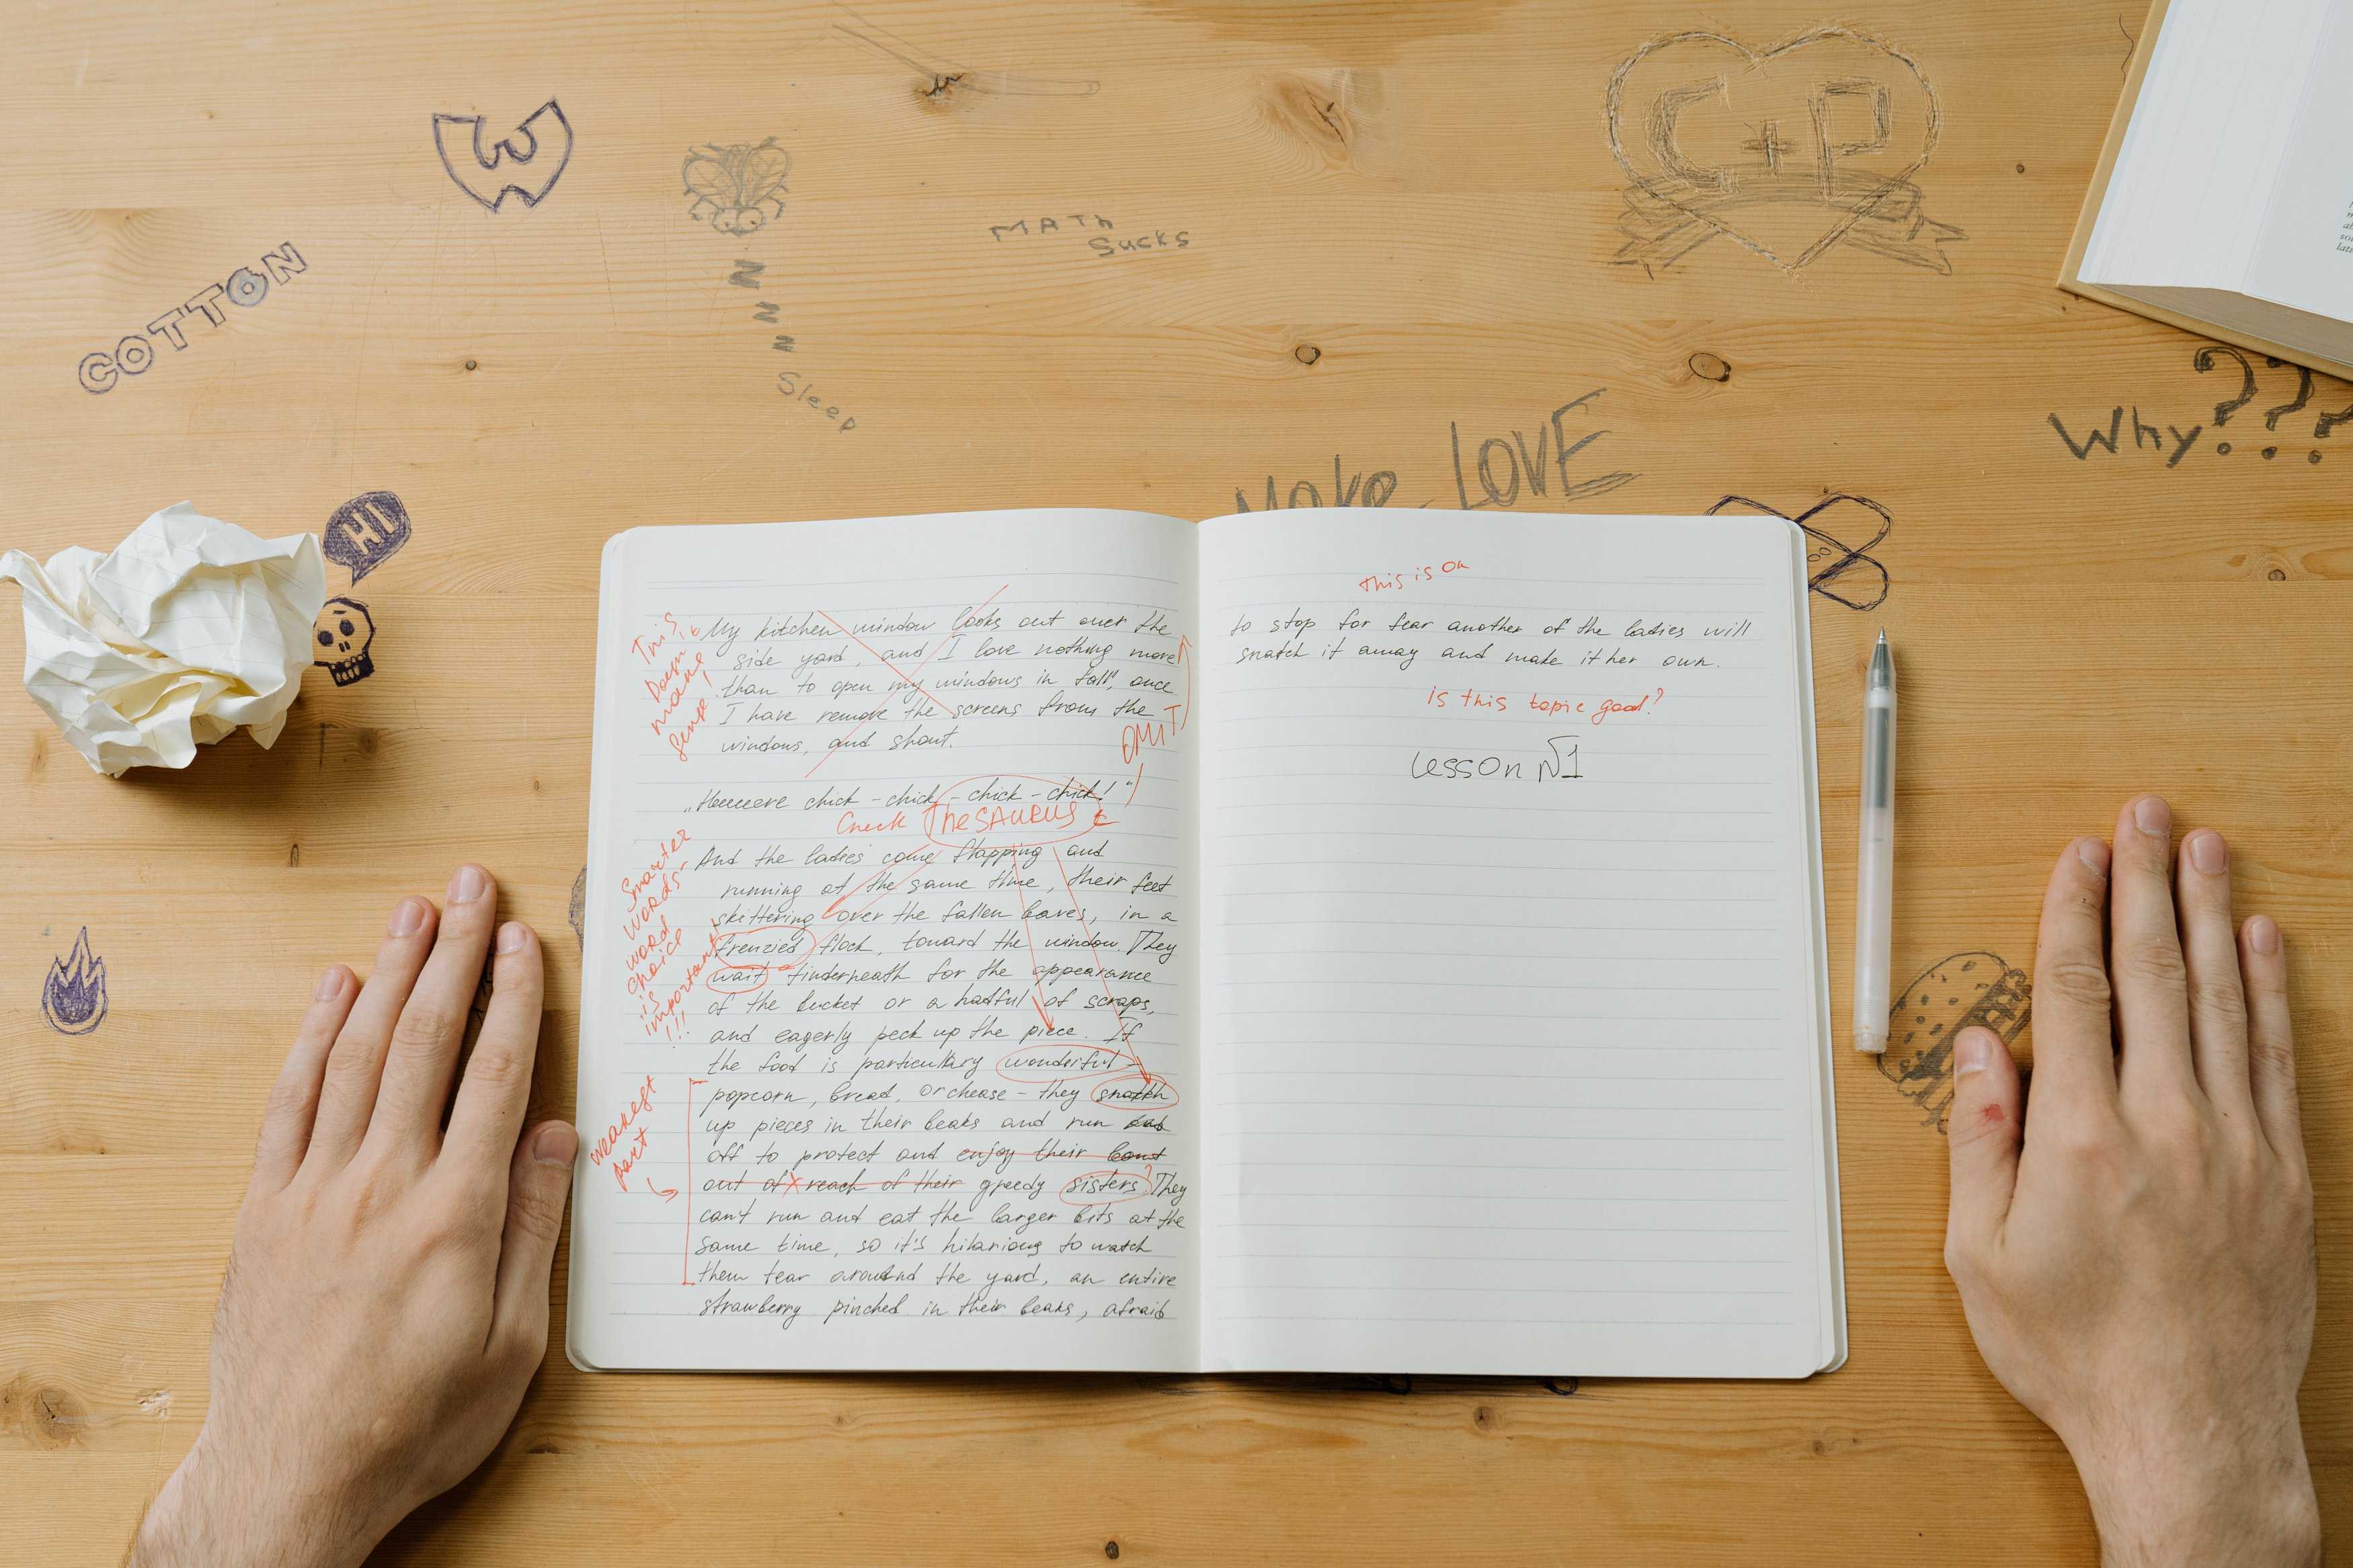 COTTON
W
N
N
N
N
Sleep
MATh
Sucks
C+P
Make LOVE
Why???
HI
This
Doesn't
make
sense!
My kitchen window looks out over the
side yard, and I love nothing more
than to open my windows in fall, once
I have remove the screens from the
windows, and shout.
OMIT
„Heeeere chick - chick - chick - chick! "
Check TheSAURUS
Smarter
words-
word
choice
is
important
!!!
And the ladies come flapping and
running at the same time, their feet
skittering over the fallen leaves, in a
frenzied flock, toward the window. They
wait underneath for the appearance
of the bucket or a hatful of scraps,
and eagerly peck up the piece. If
the food is particulary wonderful -
weakest
part
popcorn, bread, or chease - they snatch
up pieces in their beaks and run out
off to protect and enjoy their
out of reach of their greedy sisters? They
can't run and eat the larger bits at the
same time, so it's hilarious to watch
them tear around the yard, an entire
strawberry pinched in their beaks, afraid
This is ok
to stop for fear another of the ladies will
snatch it away and make it her own.
is this topic good?
Lesson №1